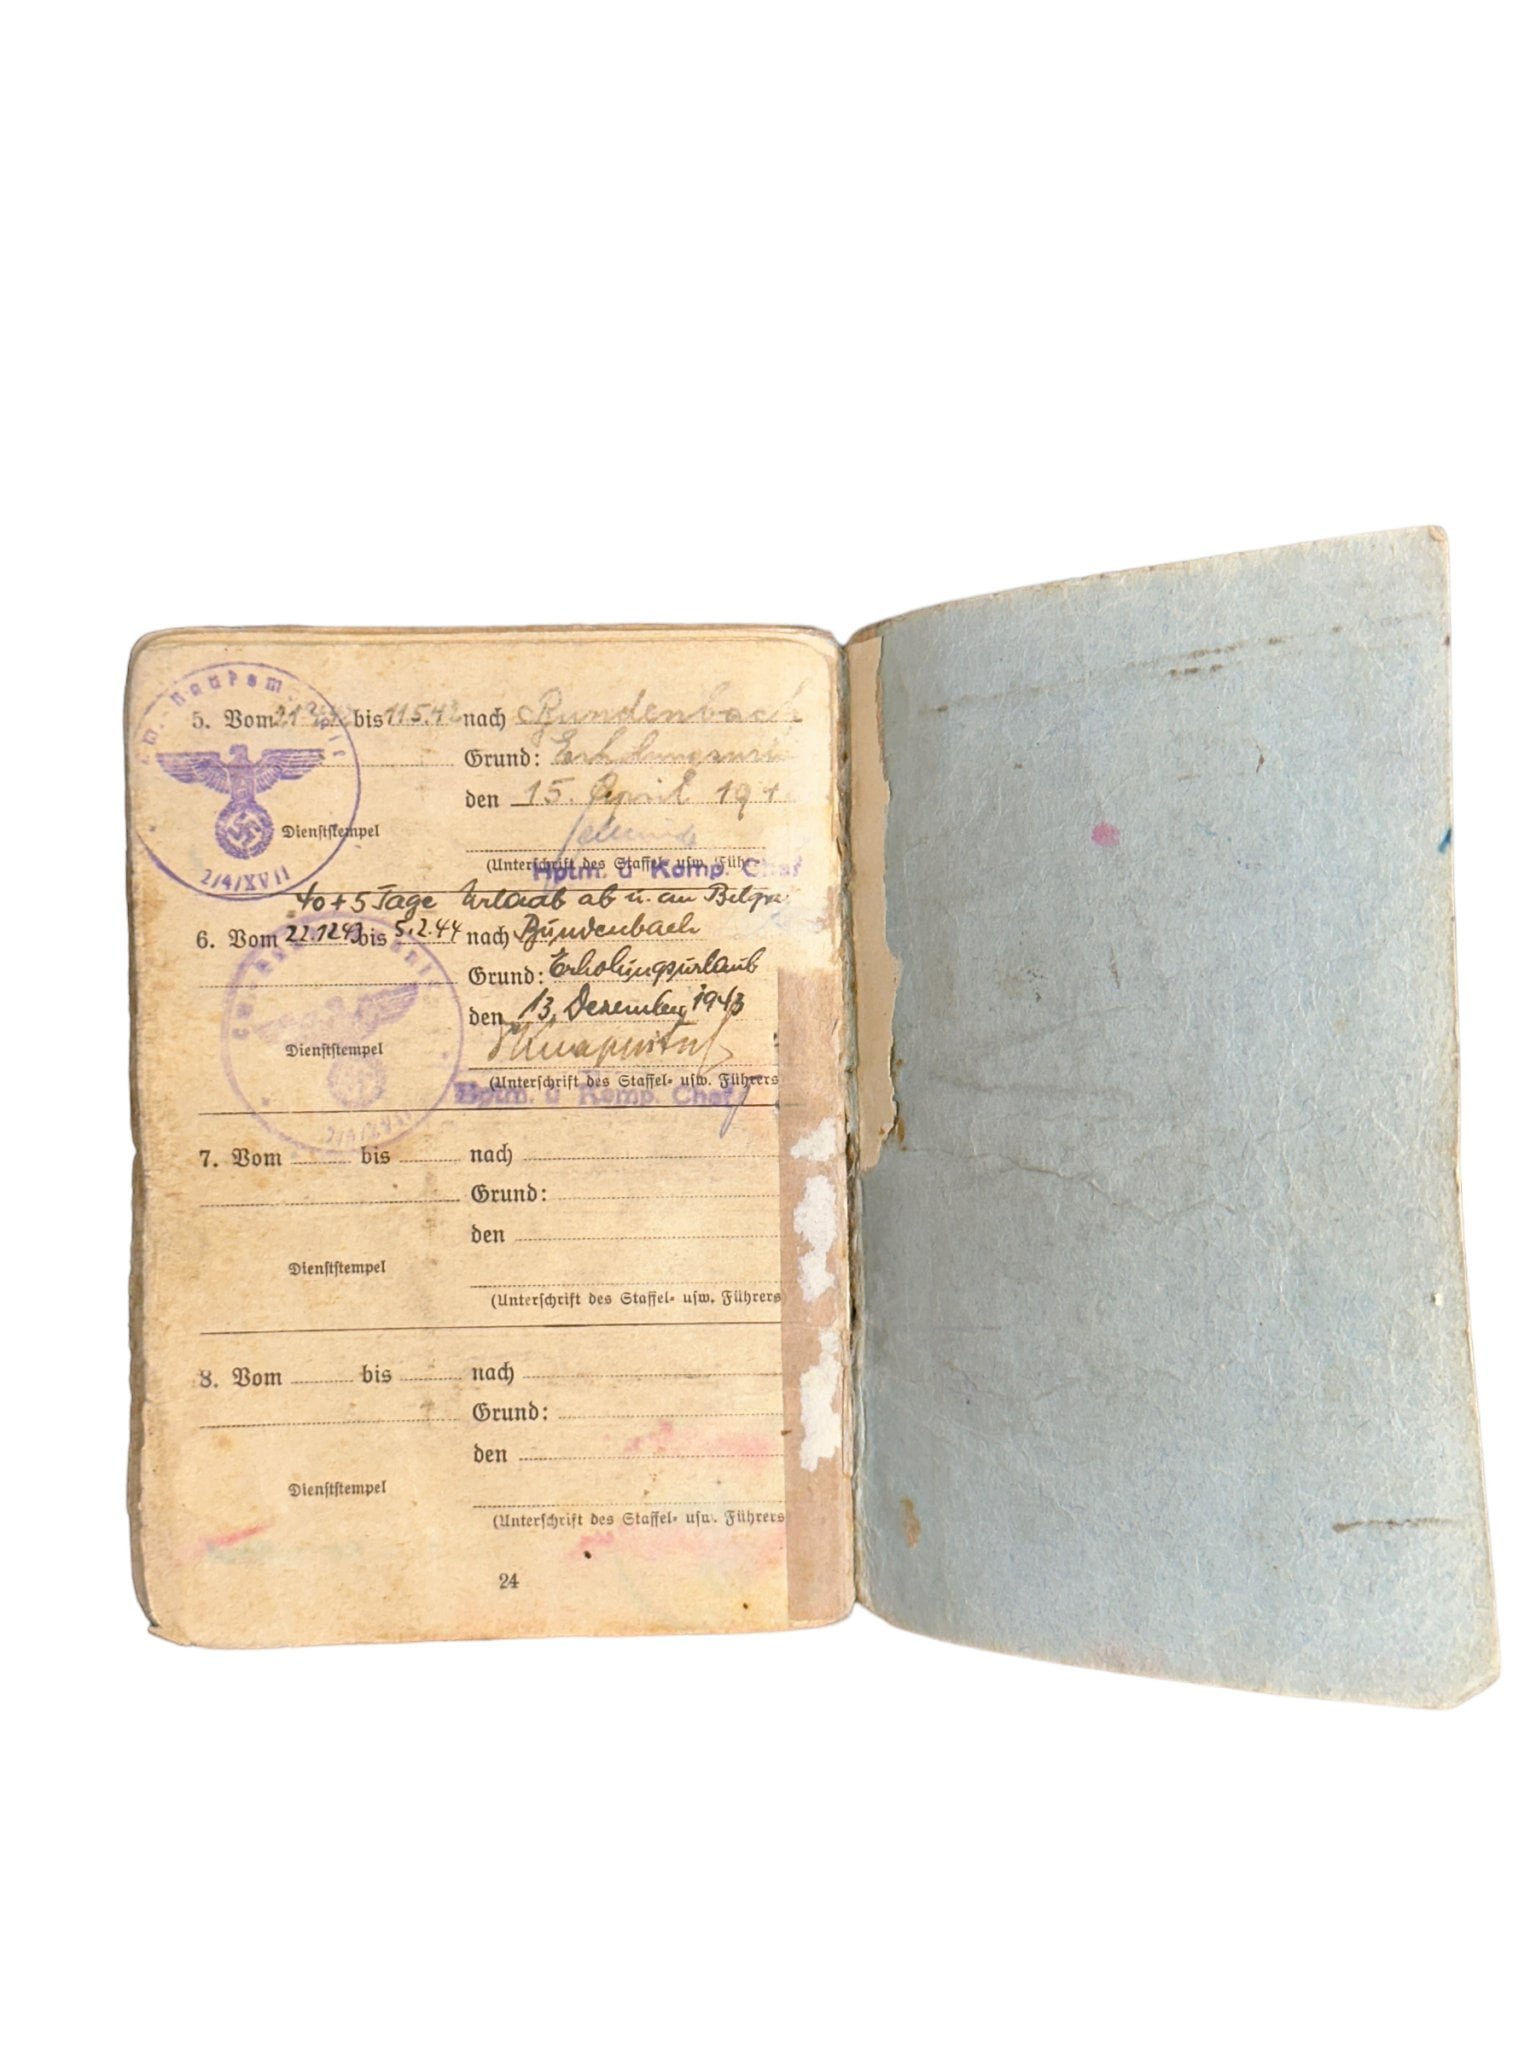 5. Vom bis 11.5.42 nach Bundenbach
Grund: Erholungsurl
den 15. April 19
Dienststempel
(Unterschrift des Staffel- usw. Führ
Hptm. u Komp. Chef
2/4/XVII
40 + 5 Tage Urlaub ab u. an Belgra
6. Vom 22.12.43 bis 5.2.44 nach Bundenbach
Grund: Erholungsurlaub
den 13. Dezember 1943
Dienststempel
(Unterschrift des Staffel- usw. Führers
Hptm. u Komp. Chef
7. Vom bis nach
Grund:
den
Dienststempel
(Unterschrift des Staffel- usw. Führers
8. Vom bis nach
Grund:
den
Dienststempel
(Unterschrift des Staffel- usw. Führers
24